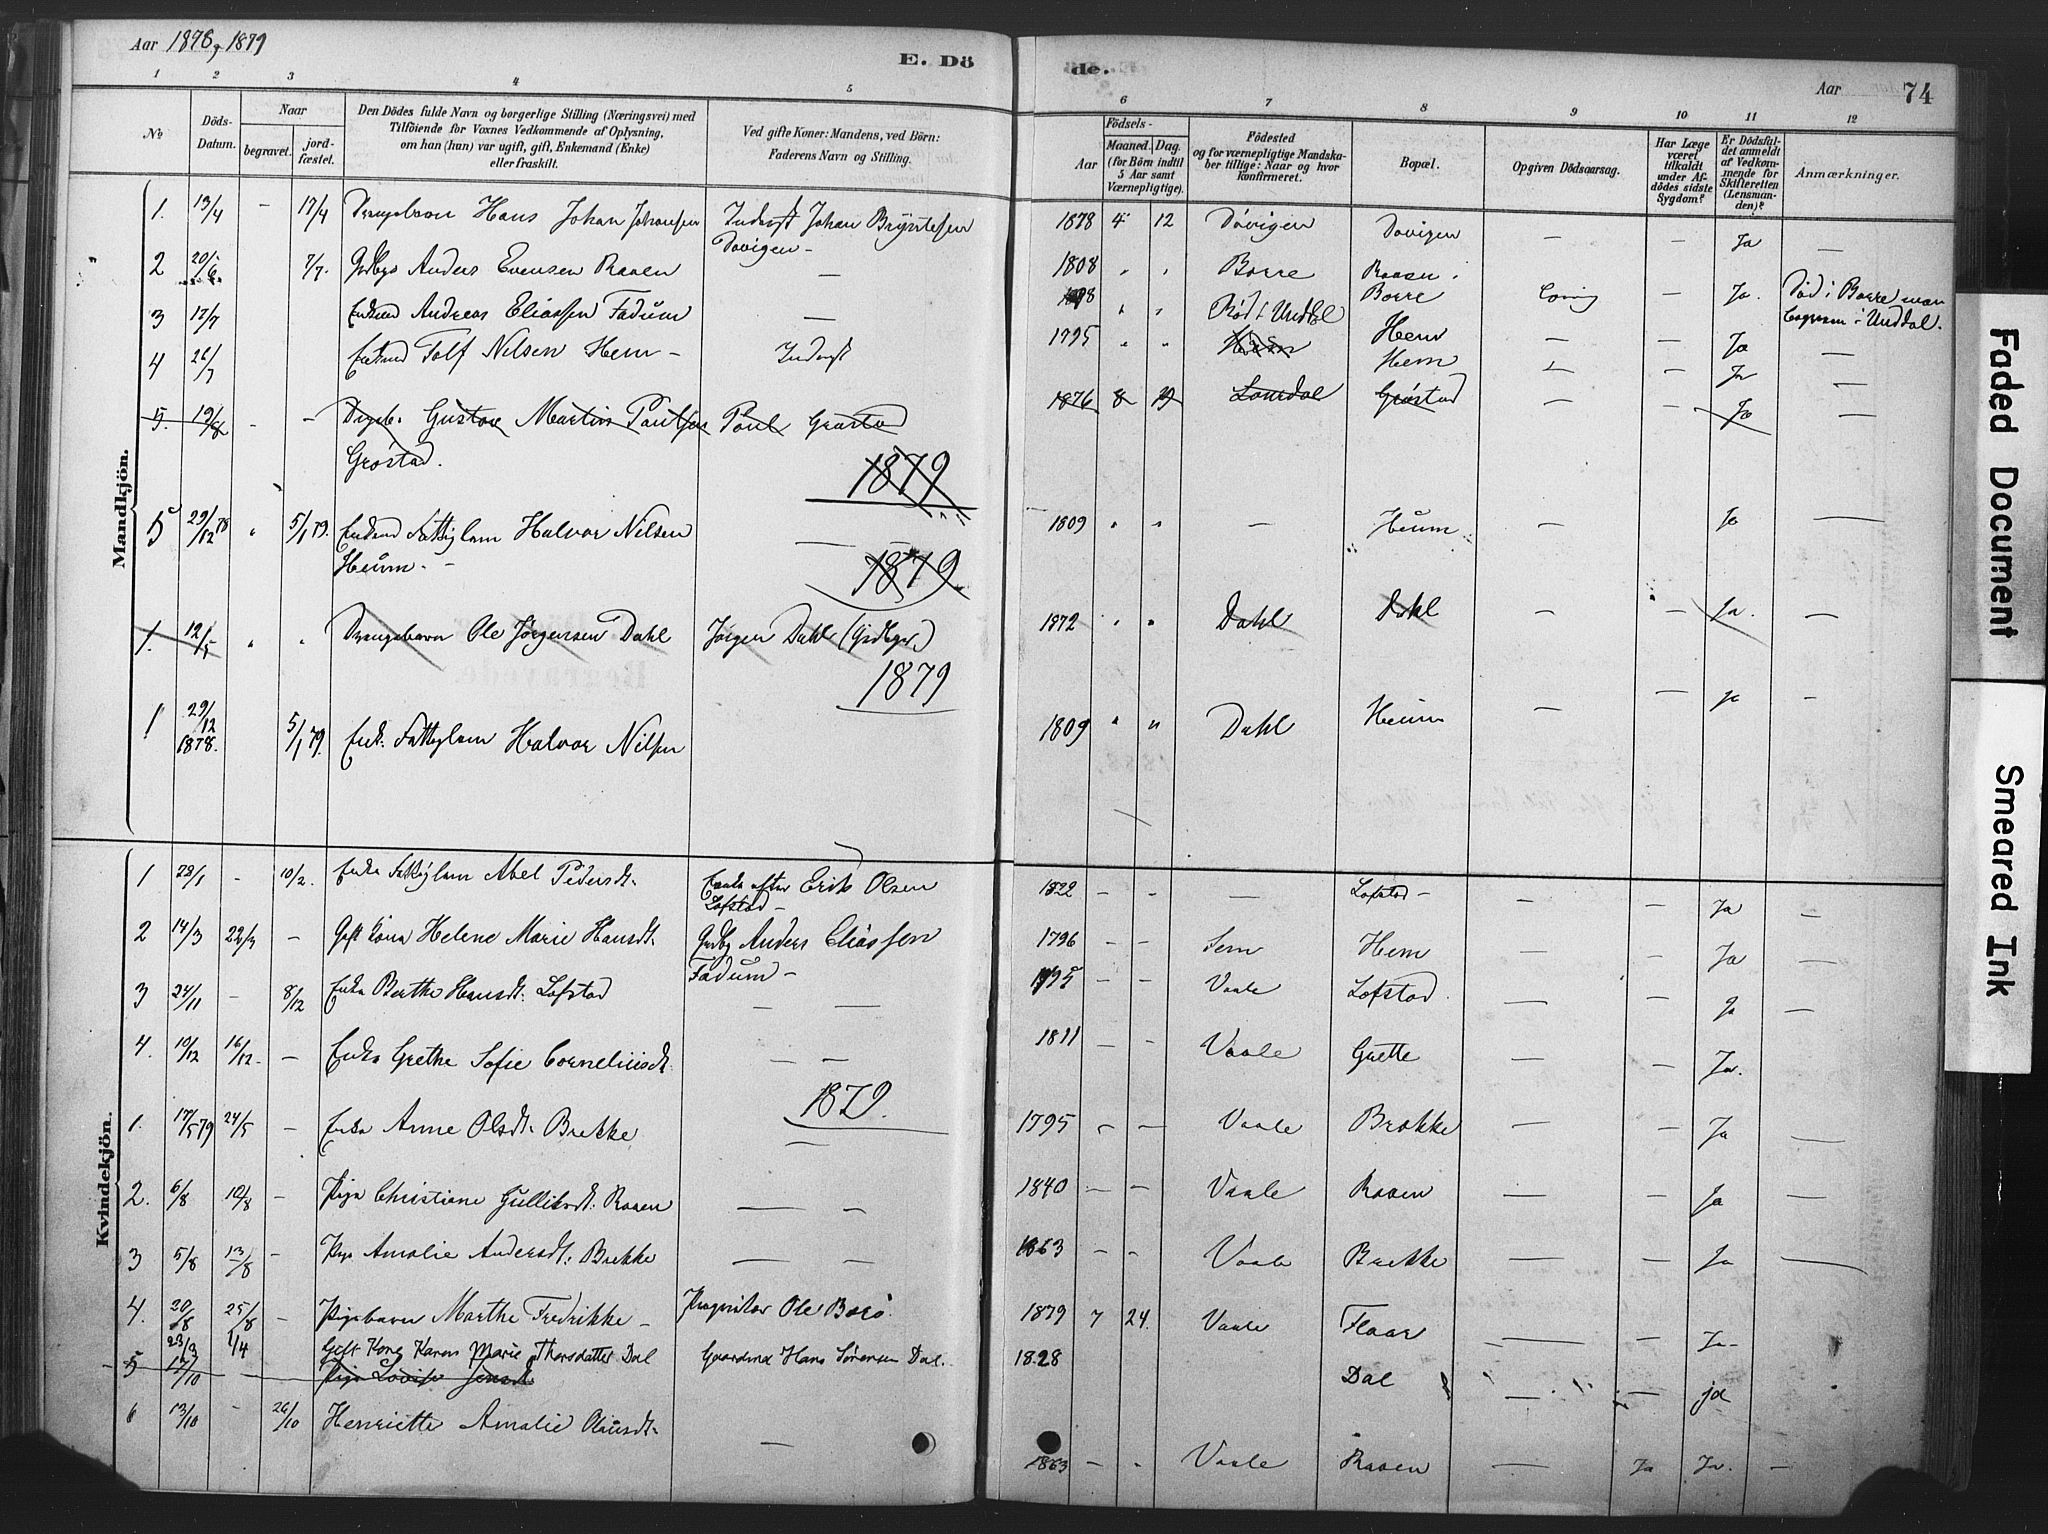 Aar 1878, 1879
E. Dö
de.
Aar
74
1 2 3 4 5 6 7 8 9 10 11 12
No
Döds-
Datum.
Naar
begravet.
jord-
fæstet.
Den Dödes fulde Navn og borgerlige Stilling (Næringsvei) med
Tilföiende for Voxnes Vedkommende af Oplysning,
om han (hun) var ugift, gift, Enkemand (Enke)
eller fraskilt.
Ved gifte Koner: Mandens, ved Börn:
Faderens Navn og Stilling.
Födsels-
Aar
Maaned. Dag.
(for Börn indtil
5 Aar samt
Værnepligtige).
Födested
og for værnepligtige Mandska-
ber tillige: Naar og hvor
konfirmeret.
Bopæl.
Opgiven Dödsaarsag.
Har Læge
været
tilkaldt
under Af-
dödes sidste
Sygdom?
Er Dödsfal-
det anmeldt
af Vedkom-
mende for
Skifteretten
(Lensman-
den)?
Anmærkninger.
Mandkjön.
1. 13/4 - 17/4 Drengebarn Hans Johan Johansen Inderst Johan Bryntesen 1878 4 12 Dövigen Dovigen — — Ja —
Dovigen —
2 20/6 7/7. Grdbgr Anders Evensen Raaen — 1808 " " Borre Raaen
3 17/7 Enkmd Andreas Eliassen Fadum — " " Rød i Unddal Borre — Ja. Død i Borre
i Unddal.
4 26/7 Enkmd Tolf Nilsen Hem — Inderst 1795 " " Hem — — Ja —
Hem — — Ja —
5. 19/8 - - Drgb. Gustav Martin Paulsen Paul Grøstad 1876 8 Grøstad — — Ja —
Grøstad.
1879
5 29/12 78 " 5/1 79. Enkmd Fattiglem Halvor Nilsen — — 1809 " " — Heum — Ja —
Heum. —
1879
1. 12/5 " " Drengebarn Ole Jørgensen Dahl Jørgen Dahl (Grdbgr) 1872 " " Dahl Dahl — — Ja. —
1879
1 29/12 1878. 5/1 79. Enk. Fattiglem Halvor Nilsen 1809 " " Dahl Heum — — Ja -
Kvindekjön.
1 28/1 - 10/2. Enke Fattiglem Abel Pedersdt. Enke efter Erik Olsen 1822 — — — Lofstad — — — Ja —
Lofstad —
2 14/3 22/3 — Gift Kona Helene Marie Hansdt. Grdbg Anders Eliassen 1796 — — Sem Hem — — Ja —
Fadum —
3 24/11 - 8/12 Enke Berthe Hansdt: Lofstad — — 1795 — — Vaale Lofstad — — Ja —
4. 10/12 16/12. — Enke Grethe Sofie Corneliusdt. — — 1811 — — Vaale Grette — — Ja. —
1879.
1. 17/5 79 24/5 — Enke Anne Olsdt. Brekke — 1795 — — Vaale Brekke — — Ja —
2. 6/8 10/8 — Pige Christiane Gulliksdt: Raaen — — 1840 — — Vaale Raaen — — Ja —
3 5/8 13/8 — Pige Amalie Andersdt: Brekke — — 1863 — — Vaale Brekke — — Ja —
4. 20/8 25/8 — Pigebarn Marthe Fredrikke — Ole 1879 7 24. Vaale Flaar — Ja —
23/3 1/4 Gift Kone Karen Marie Thorsdatter Dal Gaardmd Hans Sørensen Dal. 1828 Dal — — ja
5 17/10 — — Pige Lovise Jensdt
6 13/10 - 26/10 Henriette Amalie Olausdt. — 1863 — - Vaale Raaen — Ja Ja. —
Faded Document
Smeared Ink